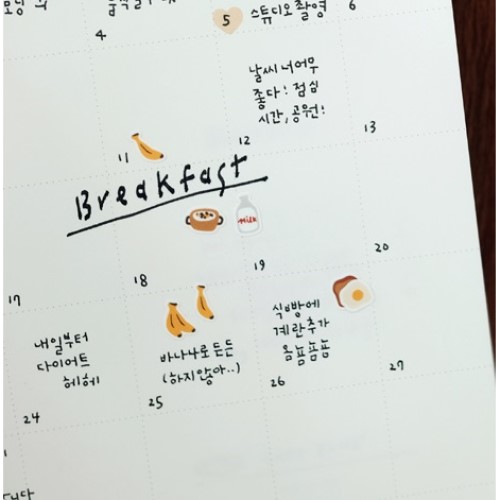 5
스튜디오 촬영
6
4
날씨 너어무
좋다! 점심
시간, 공원!
11
12
13
Breakfast
milk
17
18
19
20
내일부터
다이어트
헤헤
바나나로 든든
(하지않아..)
식빵에
계란추가
욤뇸뇸뇸
24
25
26
27